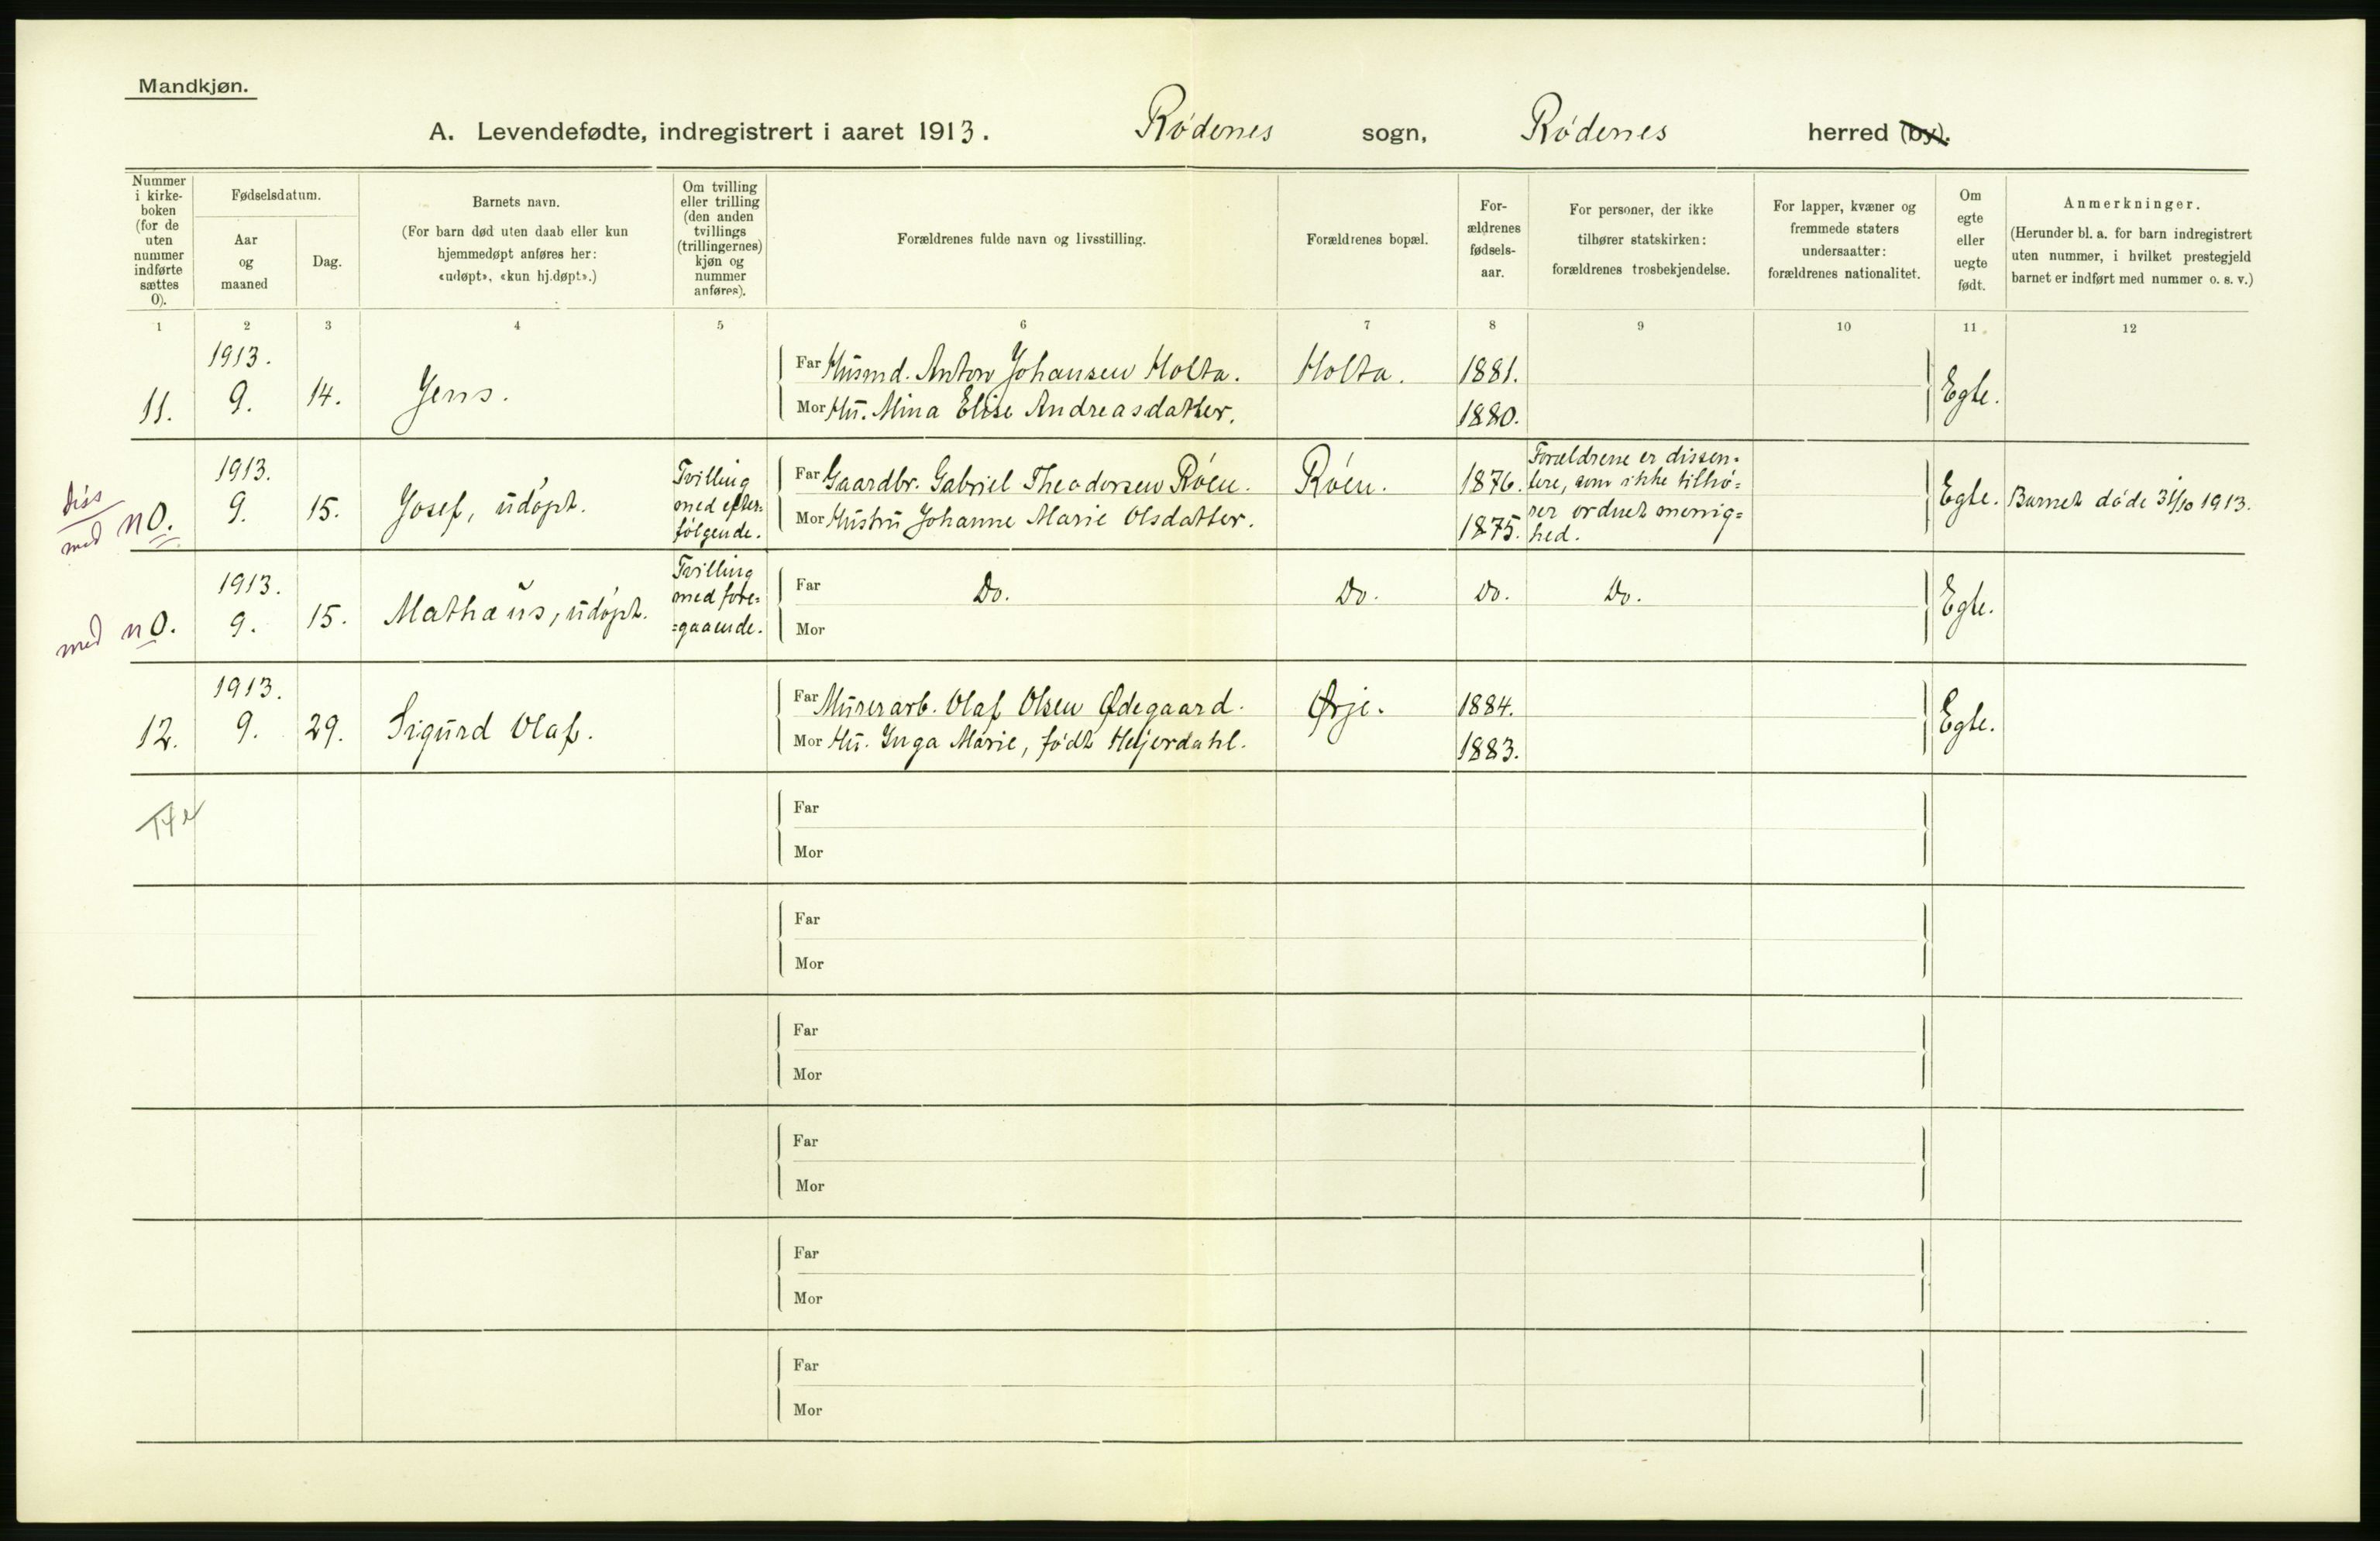 Mandkjøn.
A. Levendefødte, indregistrert i aaret 1913. Rødenes sogn, Rødenes herred (by).
Nummer i kirke- boken (for de uten nummer indførte sættes 0).
Fødselsdatum.
Aar og maaned
Dag.
Barnets navn.
(For barn død uten daab eller kun hjemmedøpt anføres her: «udøpt», «kun hj.døpt».)
Om tvilling eller trilling (den anden tvillings (trillingernes) kjøn og nummer anføres).
Forældrenes fulde navn og livsstilling.
Forældrenes bopæl.
For- ældrenes fødsels- aar.
For personer, der ikke tilhører statskirken: forældrenes trosbekjendelse.
For lapper, kvæner og fremmede staters undersaatter: forældrenes nationalitet.
Om egte eller uegte født.
Anmerkninger.
(Herunder bl. a. for barn indregistrert uten nummer, i hvilket prestegjeld barnet er indført med nummer o. s. v.)
1 2 3 4 5 6 7 8 9 10 11 12
11. 1913. 9. 14. Jens. Far Husmd. Anton Johansen Holta. Holta. 1881. Egte.
Mor Hu. Mina Elise Andreasdatter. 1880.
diss
med n 0. 1913. 9. 15. Josef, udøpt. Tvilling med efter= følgende. Far Gaardbr. Gabriel Theodorsen Røen. Røen. 1876. Forældrene er dissen= tere, som ikke tilhø= rer ordnet menig= hed. Egte. Barnet døde 31/10 1913.
Mor Hustru Johanne Marie Olsdatter. 1875.
med n 0. 1913. 9. 15. Mathæus, udøpt. Tvilling med fore= =gaaende. Far Do. Do. Do. Do. Egte.
Mor
12. 1913. 9. 29. Sigurd Olaf. Far Murerarb. Olaf Olsen Ødegaard. Ørje. 1884. Egte.
Mor Hu. Inga Marie, født Heijerdahl. 1883.
Far
Mor
Far
Mor
Far
Mor
Far
Mor
Far
Mor
Far
Mor